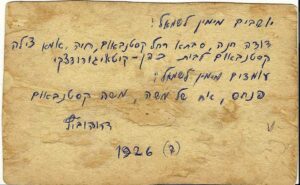 יושבים מימין לשמאל:
דודה חנה, סבתא רחל קסטנבאום, חיה, אמא צילה
קסטנבאום לבית כהן-
עומדים מימין לשמאל:
פנחס, אח של משה, משה קסטנבאום
דרוהוביץ
1926 (?)